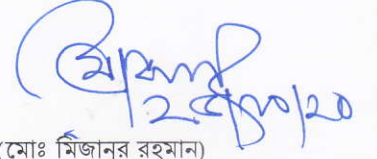 ২৫/১০/২০
(মোঃ মিজানুর রহমান)